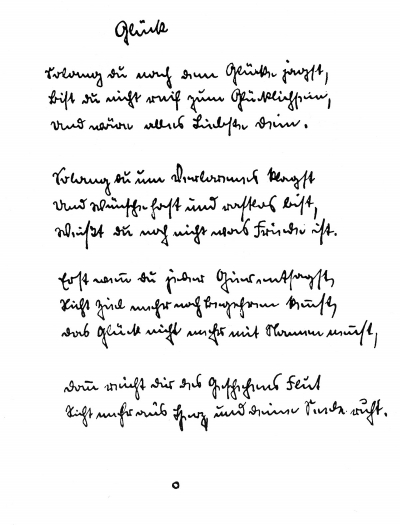 Glück
Solang du nach dem Glücke jagst,
Bist du nicht reif zum Glücklichsein,
Und wäre alles Liebste dein.
Solang du um Verlorenes klagst
Und Wünsche hast und rastlos bist,
Weißt du noch nicht was Friede ist.
Erst wenn du jeder Gier entsagst,
Nicht Ziel mehr noch Begehren kennst,
Das Glück nicht mehr mit Namen nennst,
Dann reicht dir des Geschehens Flut
Nicht mehr ans Herz und deine Seele ruht.